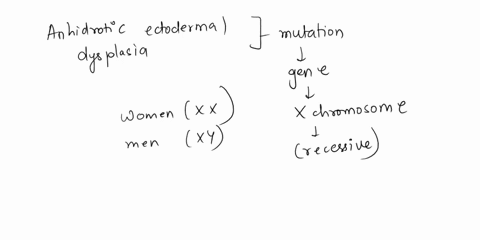 Anhidrotic ectodermal
dysplasia
mutation
↓
gene
↓
X chromosome
↓
(recessive)
women (XX)
men (XY)